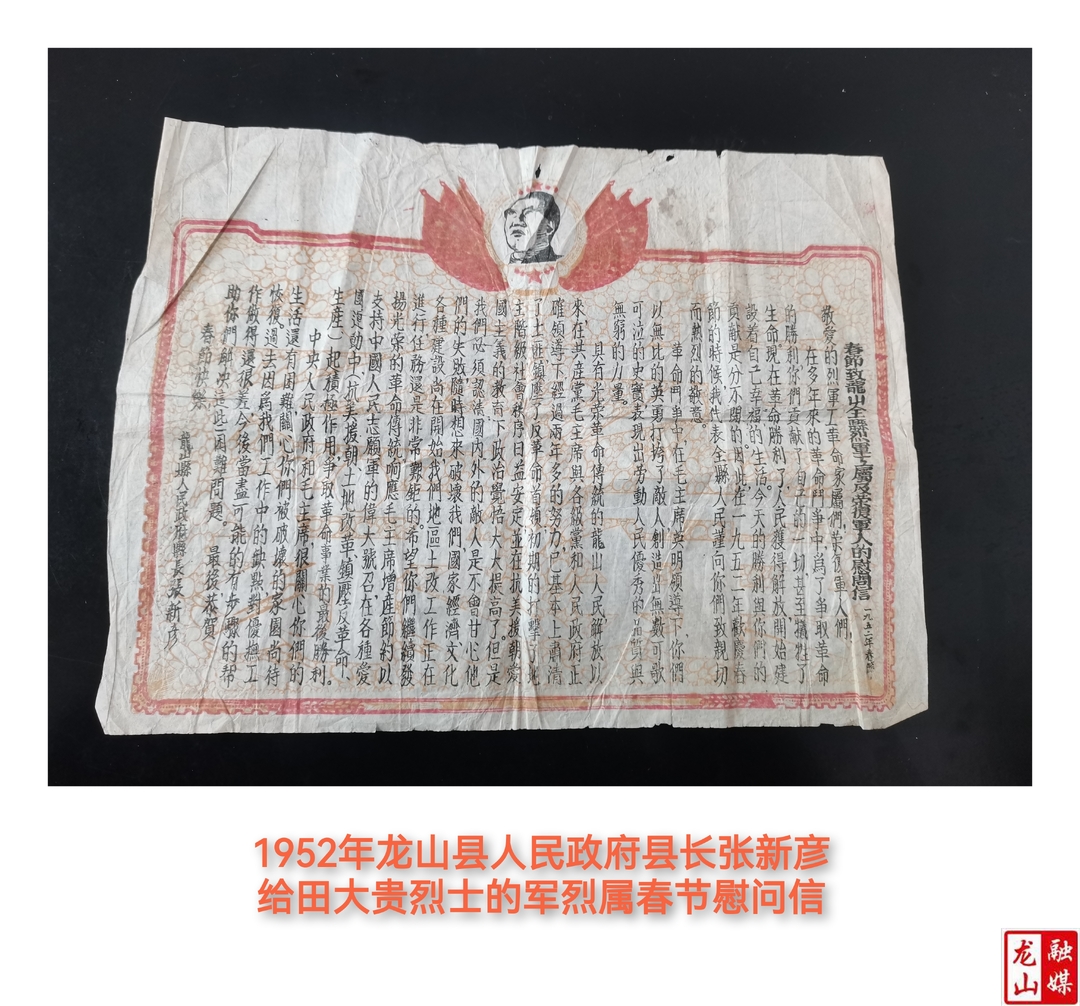 春節致龍山全縣烈軍工屬及榮復軍人的慰問信
一九五二年春節
敬愛的烈軍工革命家屬們，榮復軍人們：
在多年來的革命鬥爭中，為了爭取革命
的勝利，你們貢獻了自己的一切甚至犧牲了
生命，現在革命勝利了，人民獲得解放，開始建
設着自己幸福的生活，今天的勝利與你們的
貢獻是分不開的。因此，在一九五二年歡慶春
節的時候，我代表全縣人民謹向你們致親切
而熱烈的敬意。
革命鬥爭中，在毛主席英明領導下，你們
以無比的英勇打垮了敵人，創造出無數可歌
可泣的史實，表現出勞動人民優秀的品質與
無窮的力量。
具有光榮革命傳統的龍山人民，解放以
來在共產黨毛主席與各級黨和人民政府正
確領導下，經過兩年多的努力，已基本上肅清
了土匪，鎮壓了反革命首領，初期的打擊了地
主階級，社會秩序日益安定，並在抗美援朝愛
國主義的教育下，政治覺悟大大提高了。但是
我們必須認清國內外的敵人是不會甘心他
們的失敗，隨時想來破壞我們，國家經濟文化
各種建設尚在開始，我們地區土改工作正在
進行，任務還是非常艱鉅的。希望你們繼續發
揚光榮的革命傳統，响應毛主席增產節約以
支持中國人民志願軍的偉大號召，在各種愛
國運動中(抗美援朝、土地改革、鎮壓反革命、
生產)起積極作用，爭取革命事業的最後勝利。
中央人民政府和毛主席，很關心你們的
生活還有困難，關心你們被破壞的家園尚待
恢復。過去因為我們工作中的缺點，對優撫工
作做得還很差，今後當盡可能的有步驟的幫
助你們解決這些困難問題。最後恭賀
春節快樂
龍山縣人民政府縣長張新彥
1952年龙山县人民政府县长张新彦
给田大贵烈士的军烈属春节慰问信
龙山
融媒